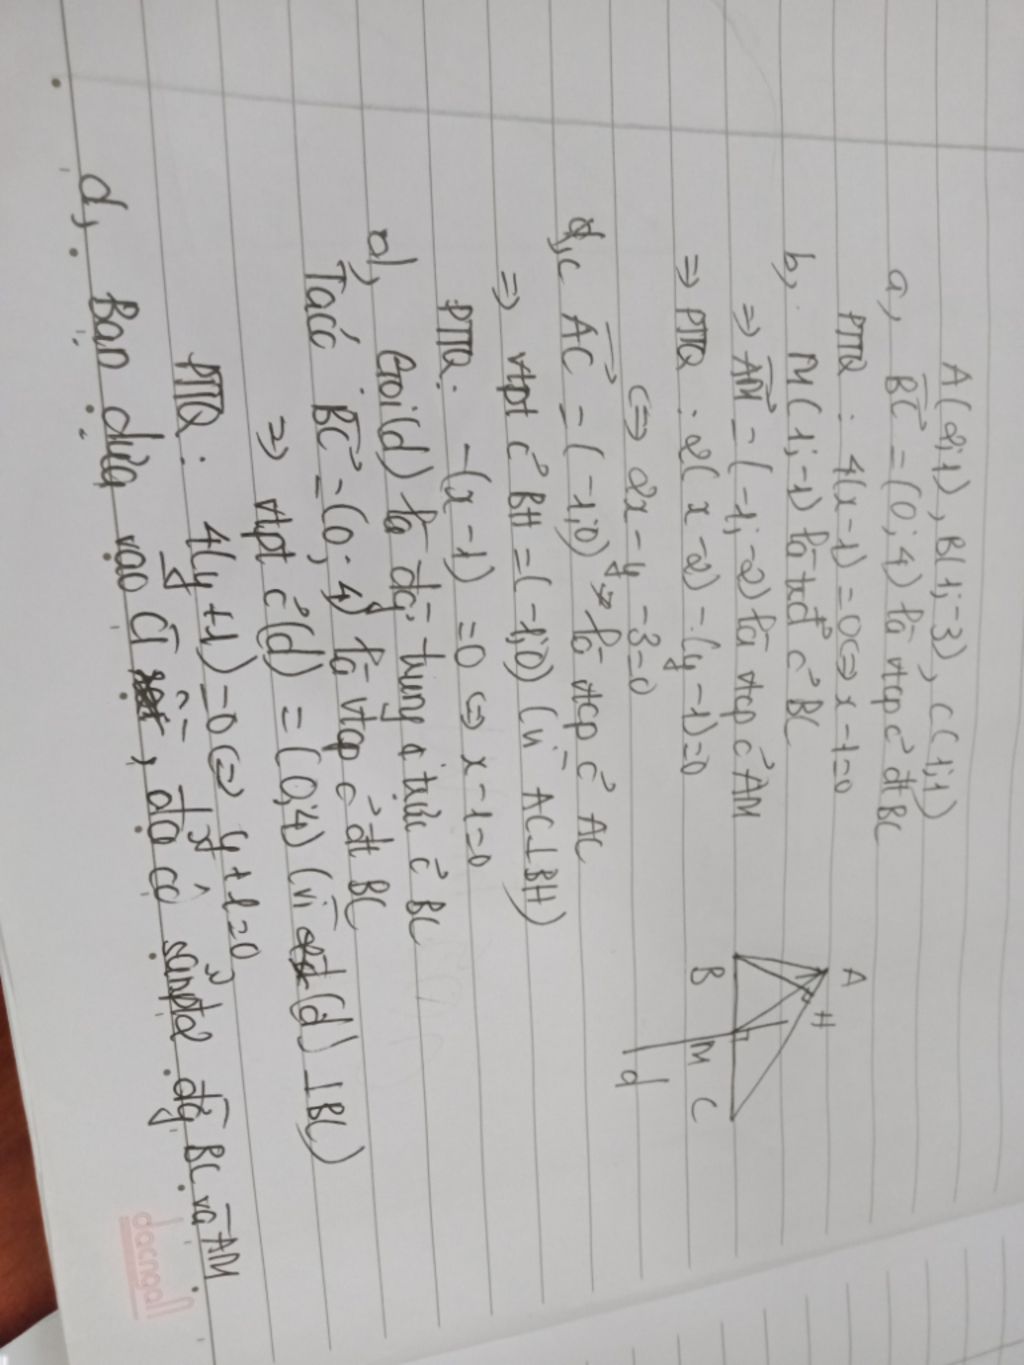 A(2;1), B(1;-3), C(1;1)
a, BC = (0;4) là vtcp c² đt BC
PTTQ : 4(x-1) = 0 <=> x-1=0
b, M(1;-1) là tđ c² BC
=> AM = (-1;-2) là vtcp c² AM
=> PTTQ : 2(x-2) - (y-1)=0
<=> 2x-y-3=0
c AC = (-1;0) là vtcp c² AC
=> vtpt c² BH = (-1;0) (vì AC⊥BH)
PTTQ. -(x-1) =0 <=> x-1=0
d, Gọi (d) là đg trung trực c² BC
Ta có BC = (0;4) là vtcp c² đt BC
=> vtpt c² (d) = (0;4) (vì (d) ⊥ BC)
PTTQ : 4(y+1) =0 <=> y+1=0
d, Bạn dựa vào , đã có sẵn ptđ đg BC và AM
A
H
B
M
C
d
dacngall